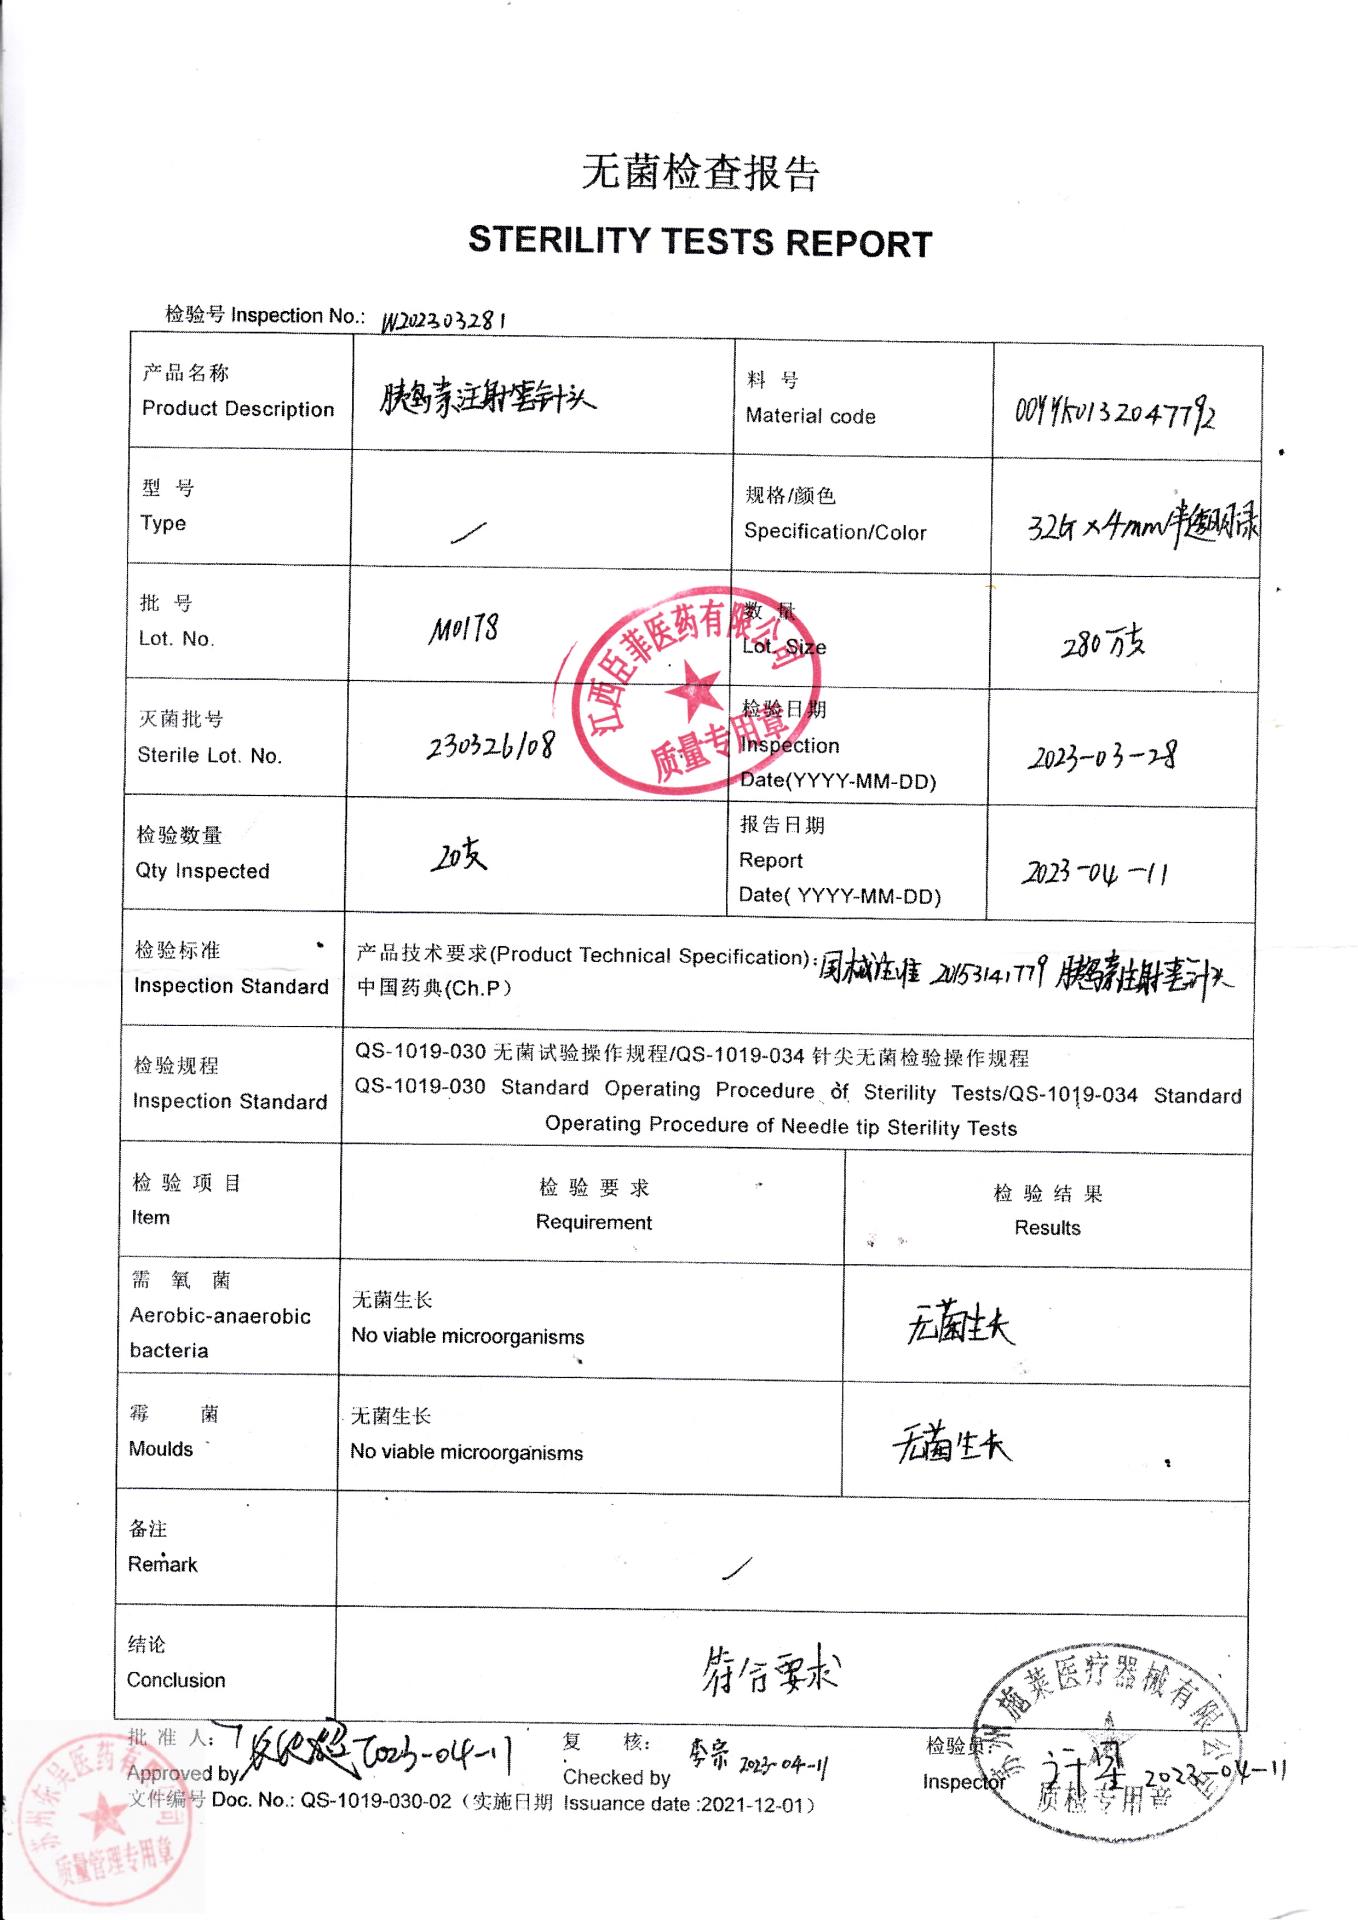 无菌检查报告
STERILITY TESTS REPORT
检验号 Inspection No.: W202303281
产品名称
Product Description
胰岛素注射笔针头
料 号
Material code
32047792
型 号
Type
/
规格/颜色
Specification/Color
32G×4mm/半透明绿
批 号
Lot. No.
M0178
数 量
Lot. Size
280万支
灭菌批号
Sterile Lot. No.
230326108
检验日期
Inspection
Date(YYYY-MM-DD)
2023-03-28
检验数量
Qty Inspected
20支
报告日期
Report
Date( YYYY-MM-DD)
2023-04-11
江西臣菲医药有限公司
质量专用章
检验标准
Inspection Standard
产品技术要求(Product Technical Specification):国械注准 20153141779 胰岛素注射笔针头
中国药典(Ch.P)
检验规程
Inspection Standard
QS-1019-030 无菌试验操作规程/QS-1019-034 针尖无菌检验操作规程
QS-1019-030 Standard Operating Procedure of Sterility Tests/QS-1019-034 Standard
Operating Procedure of Needle tip Sterility Tests
检 验 项 目
Item
检 验 要 求
Requirement
检 验 结 果
Results
需 氧 菌
Aerobic-anaerobic
bacteria
无菌生长
No viable microorganisms
无菌生长
霉 菌
Moulds
无菌生长
No viable microorganisms
无菌生长
备注
Remark
/
结论
Conclusion
符合要求
批 准 人:
Approved by
2023-04-11
复 核:
Checked by
李宗 2023-04-11
检验员:
Inspector
2023-04-11
文件编号 Doc. No.: QS-1019-030-02（实施日期 Issuance date :2021-12-01）
苏州施莱医疗器械有限公司
质检专用章
苏州东吴医药有限公司
质量管理专用章